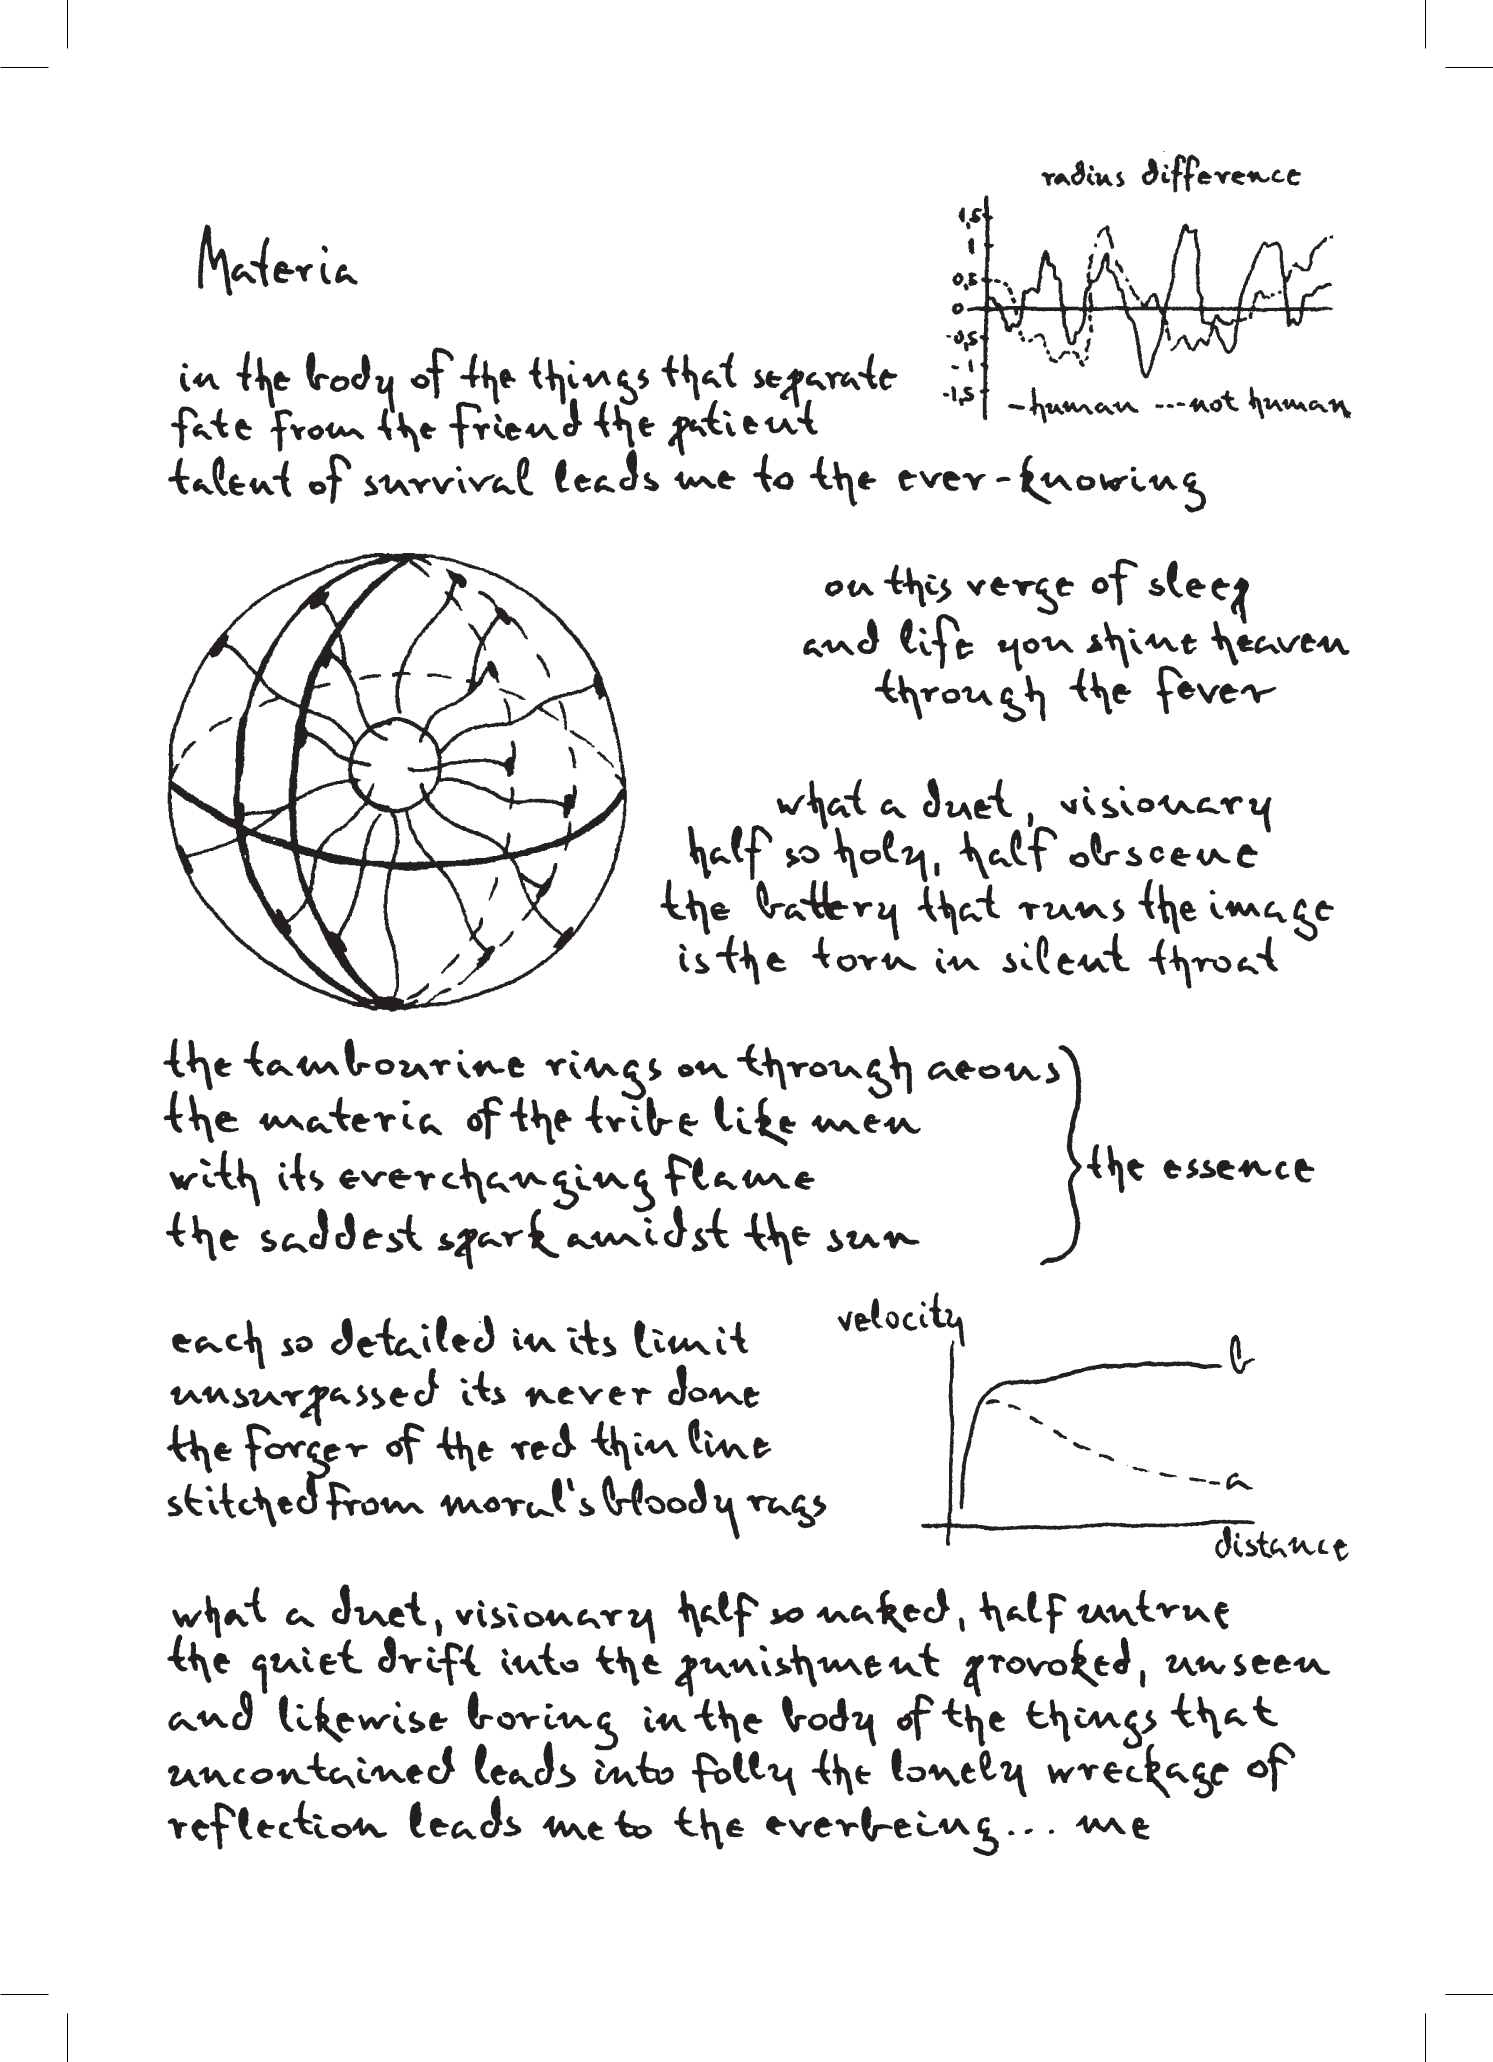 radius difference
1,5
1
0,5
0
-0,5
-1
-1,5
-human ---not human
Materia
in the body of the things that separate
fate from the friend the patient
talent of survival leads me to the ever-knowing
on this verge of sleep
and life you shine heaven
through the fever
what a duet, visionary
half so holy, half obscene
the battery that runs the image
is the torn in silent throat
the tambourine rings on through aeons
the materia of the tribe like men
with its everchanging flame
the saddest spark amidst the sun
the essence
each so detailed in its limit
unsurpassed its never done
the forger of the red thin line
stitched from moral's bloody rags
velocity
b
a
distance
what a duet, visionary half so naked, half untrue
the quiet drift into the punishment provoked, unseen
and likewise boring in the body of the things that
uncontained leads into folly the lonely wreckage of
reflection leads me to the everbeing... me